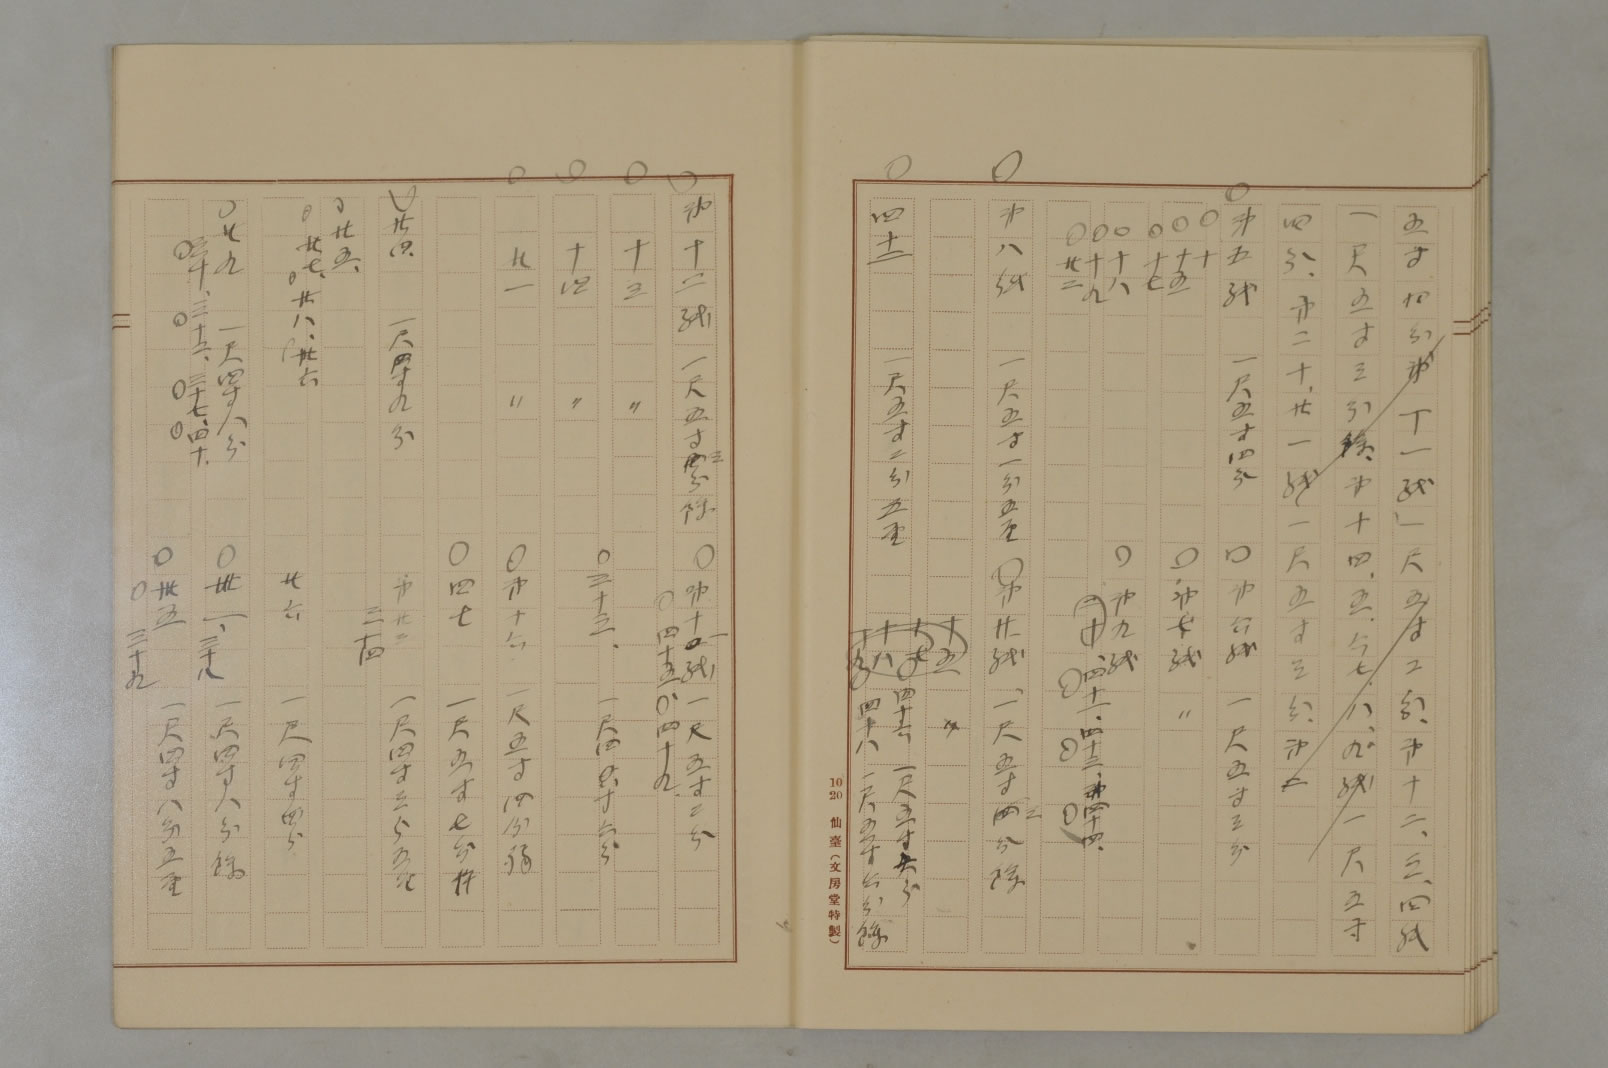 五寸四分、第十一紙」一尺五寸二分、第十二、三、四紙
一尺五寸三分餘、第十四、五、六、七、八、九紙一尺五寸
四分、第二十、廿一紙一尺五寸三分、第二
○第五紙 一尺五寸四分 ○第六紙 一尺五寸三分
○十
○十五 ○第七紙 〃
○十七
○十八 ○第九紙
○十九
○廿二 二十、四十二、四十三、四十四、
○第八紙 一尺五寸一分五厘 ○第廿紙、一尺五寸三分餘
十五 〃
十七 四十六 一尺五寸六分
○四十二 一尺五寸二分五厘 十八
十九 四十八 一尺五寸六分餘
10 20 仙臺(文房堂特製)
○第十二紙 一尺五寸三分餘 ○第十一紙 一尺五寸二分
○四十五 ○四十九
○十三 〃 ○三十三、 一尺四寸六分
○十四 〃
○廿一 〃 ○第十六 一尺五寸四分餘
○四七 一尺五寸七分
○廿四、 一尺四寸九分 第廿三 一尺四寸三分五厘
三十四
○廿五、
○廿七、○廿八、廿六 廿六 一尺四寸四分
○廿九 一尺四寸八分 ○卅一、三十八 一尺四寸八分餘
○三十、三十二、三十七、四十、 ○卅五 一尺四寸八分五厘
○三十九